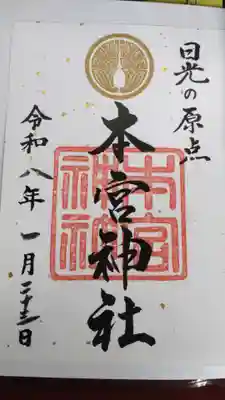 日光の原点
本宮神社
令和八年一月二十三日
本宮
神社